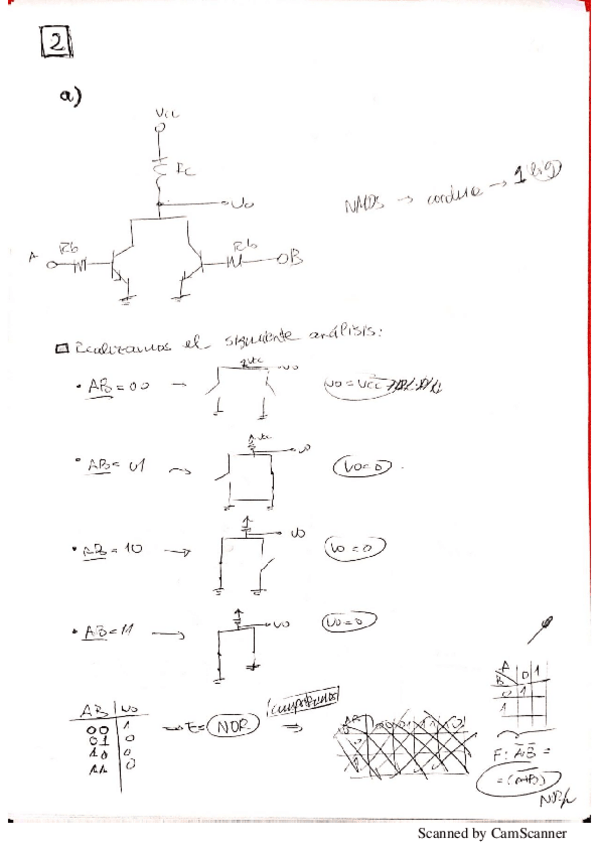 2
a)
Vcc
Rc
Vo
NMOS → conduce → 1 lóg
A Rb Rb B
Realizamos el siguiente análisis:
• AB = 00 → Vcc Vo Vo = Vcc
• AB = 01 → Vcc Vo Vo = 0
• AB = 10 → Vo Vo = 0
• AB = 11 → Vo Vo = 0
AB | Vo
00 | 1
01 | 0
10 | 0
11 | 0
→ E = NOR ⇒
comprobamos
A
B 0 1
0 1
1
F: A̅ B̅ =
NOR
Scanned by CamScanner